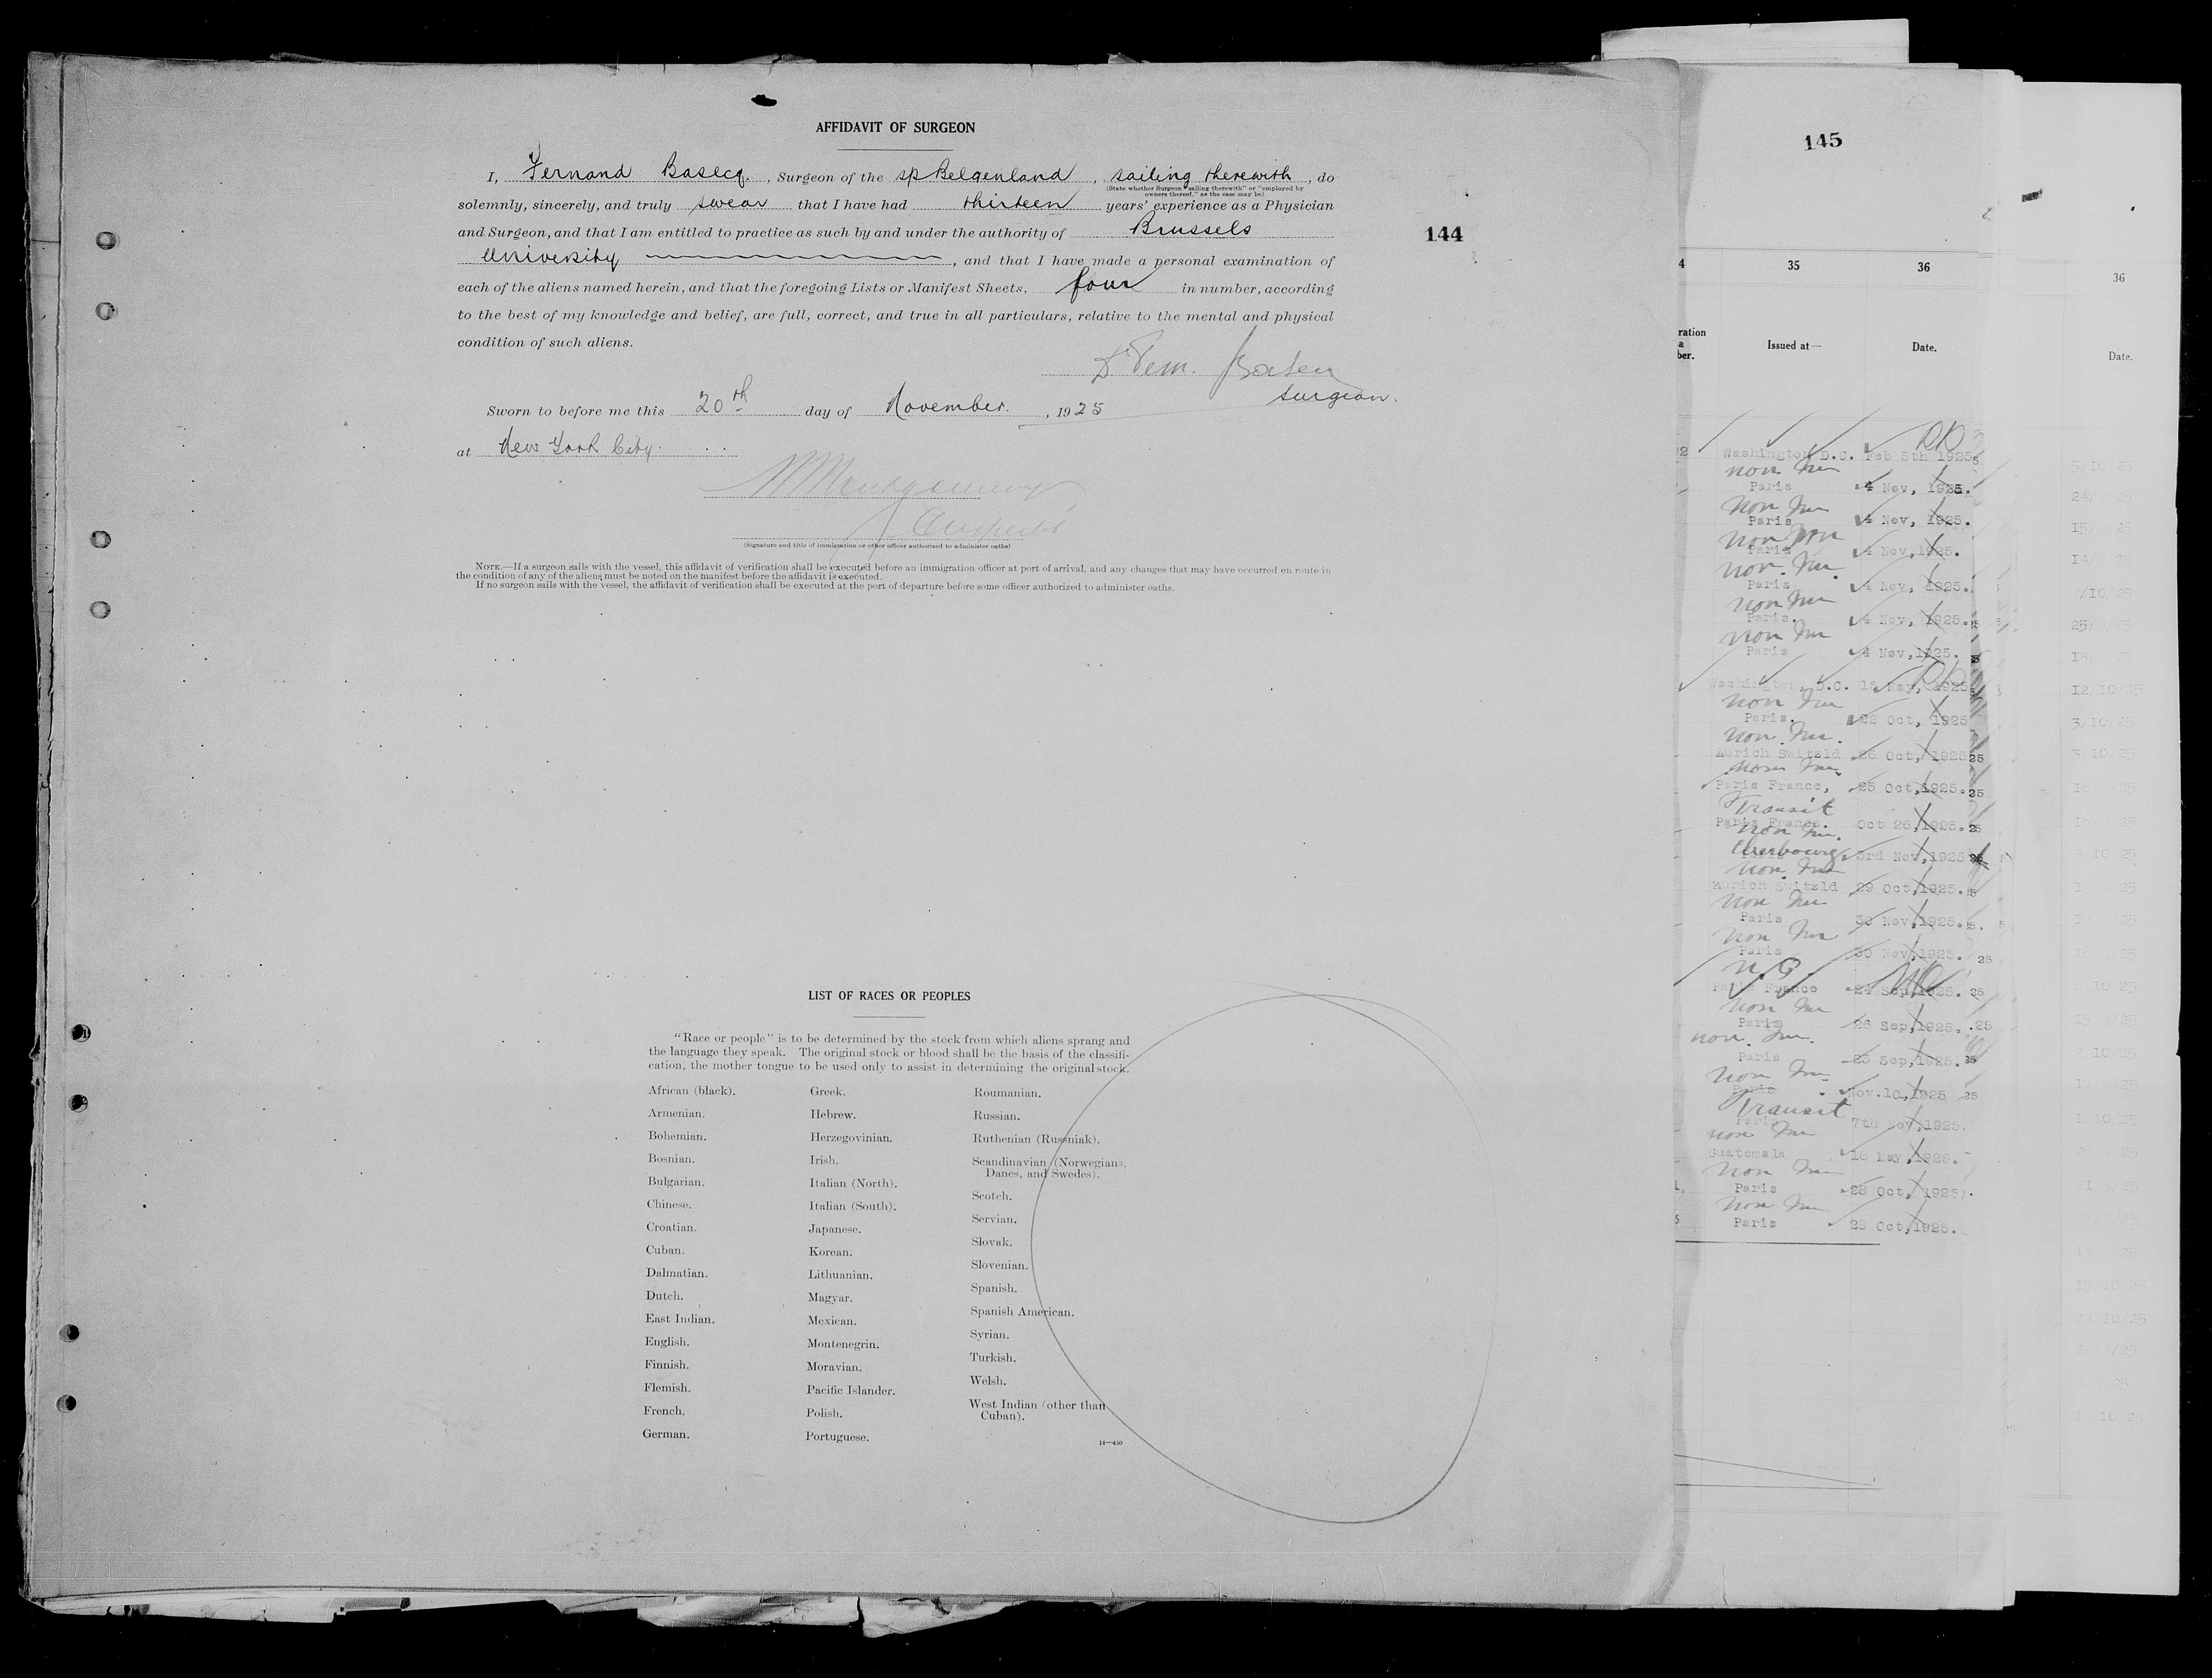 AFFIDAVIT OF SURGEON
I, Fernand Basecq., Surgeon of the sp Belgenland, sailing therewith, do
(State whether Surgeon "sailing therewith" or "employed by
owners thereof," as the case may be)
solemnly, sincerely, and truly swear that I have had thirteen years' experience as a Physician
and Surgeon, and that I am entitled to practice as such by and under the authority of Brussels
University, and that I have made a personal examination of
each of the aliens named herein, and that the foregoing Lists or Manifest Sheets, four in number, according
to the best of my knowledge and belief, are full, correct, and true in all particulars, relative to the mental and physical
condition of such aliens.
Surgeon.
Sworn to before me this 20th day of November., 1925
at New York City.
(Signature and title of immigration or other officer authorized to administer oaths)
NOTE.—If a surgeon sails with the vessel, this affidavit of verification shall be executed before an immigration officer at port of arrival, and any changes that may have occurred en route in
the condition of any of the aliens must be noted on the manifest before the affidavit is executed.
If no surgeon sails with the vessel, the affidavit of verification shall be executed at the port of departure before some officer authorized to administer oaths.
144
LIST OF RACES OR PEOPLES
"Race or people" is to be determined by the stock from which aliens sprang and
the language they speak. The original stock or blood shall be the basis of the classifi-
cation, the mother tongue to be used only to assist in determining the original stock.
African (black).
Armenian.
Bohemian.
Bosnian.
Bulgarian.
Chinese.
Croatian.
Cuban.
Dalmatian.
Dutch.
East Indian.
English.
Finnish.
Flemish.
French.
German.
Greek.
Hebrew.
Herzegovinian.
Irish.
Italian (North).
Italian (South).
Japanese.
Korean.
Lithuanian.
Magyar.
Mexican.
Montenegrin.
Moravian.
Pacific Islander.
Polish.
Portuguese.
Roumanian.
Russian.
Ruthenian (Russniak).
Scandinavian (Norwegians,
Danes, and Swedes).
Scotch.
Servian.
Slovak.
Slovenian.
Spanish.
Spanish American.
Syrian.
Turkish.
Welsh.
West Indian (other than
Cuban).
14—430
145
35 36
Issued at— Date.
Washington D.C. Feb 5th 1925
non Im
Paris 4 Nov, 1925.
non Im
Paris 4 Nov, 1925.
non Im
Paris 4 Nov, 1925.
non Im.
Paris 4 Nov, 1925.
non Im
Paris. 4 Nov, 1925.
non Im
Paris 4 Nov, 1925.
Washington, D.C. 15 May, 1925
non Im
Paris. 22 Oct, 1925
non Im.
Zurich Switzld 26 Oct, 1925
non Im
Paris France, 25 Oct, 1925.
Transit
Paris France. Oct 26, 1925.
non Im.
Cherbourg 3rd Nov, 1925
non Im
Zurich Switzld 29 Oct, 1925.
non Im
Paris 30 Nov, 1925.
non Im
Paris 30 Nov, 1925.
Paris France 24 Sep, 1925.
non Im
Paris 26 Sep, 1925.
non Im.
Paris 23 Sep, 1925.
non Im
Paris Nov. 10, 1925
Transit
Paris 7th Nov, 1925.
non Im
Guatemala 18 May, 1925.
non Im
Paris 28 Oct, 1925.
non Im
Paris 28 Oct, 1925.
36
Date.
5/10/25
12/10/25
3/10/25
3/10/25